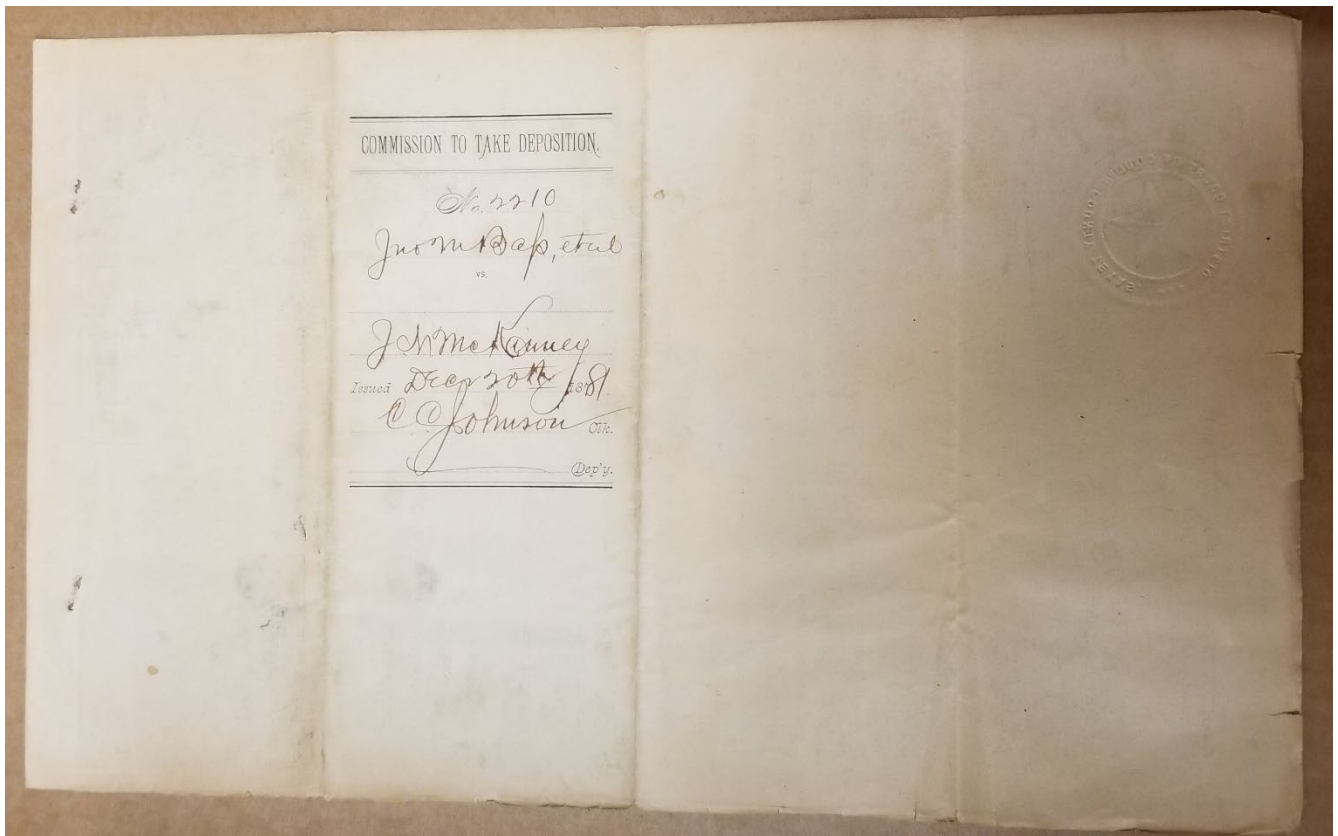 COMMISSION TO TAKE DEPOSITION.
No. 2210
Jno M Bass, et al
vs.
J N McKanney
Issued Decr 20th 1881.
C. C. Johnson Clk.
Dep'y.